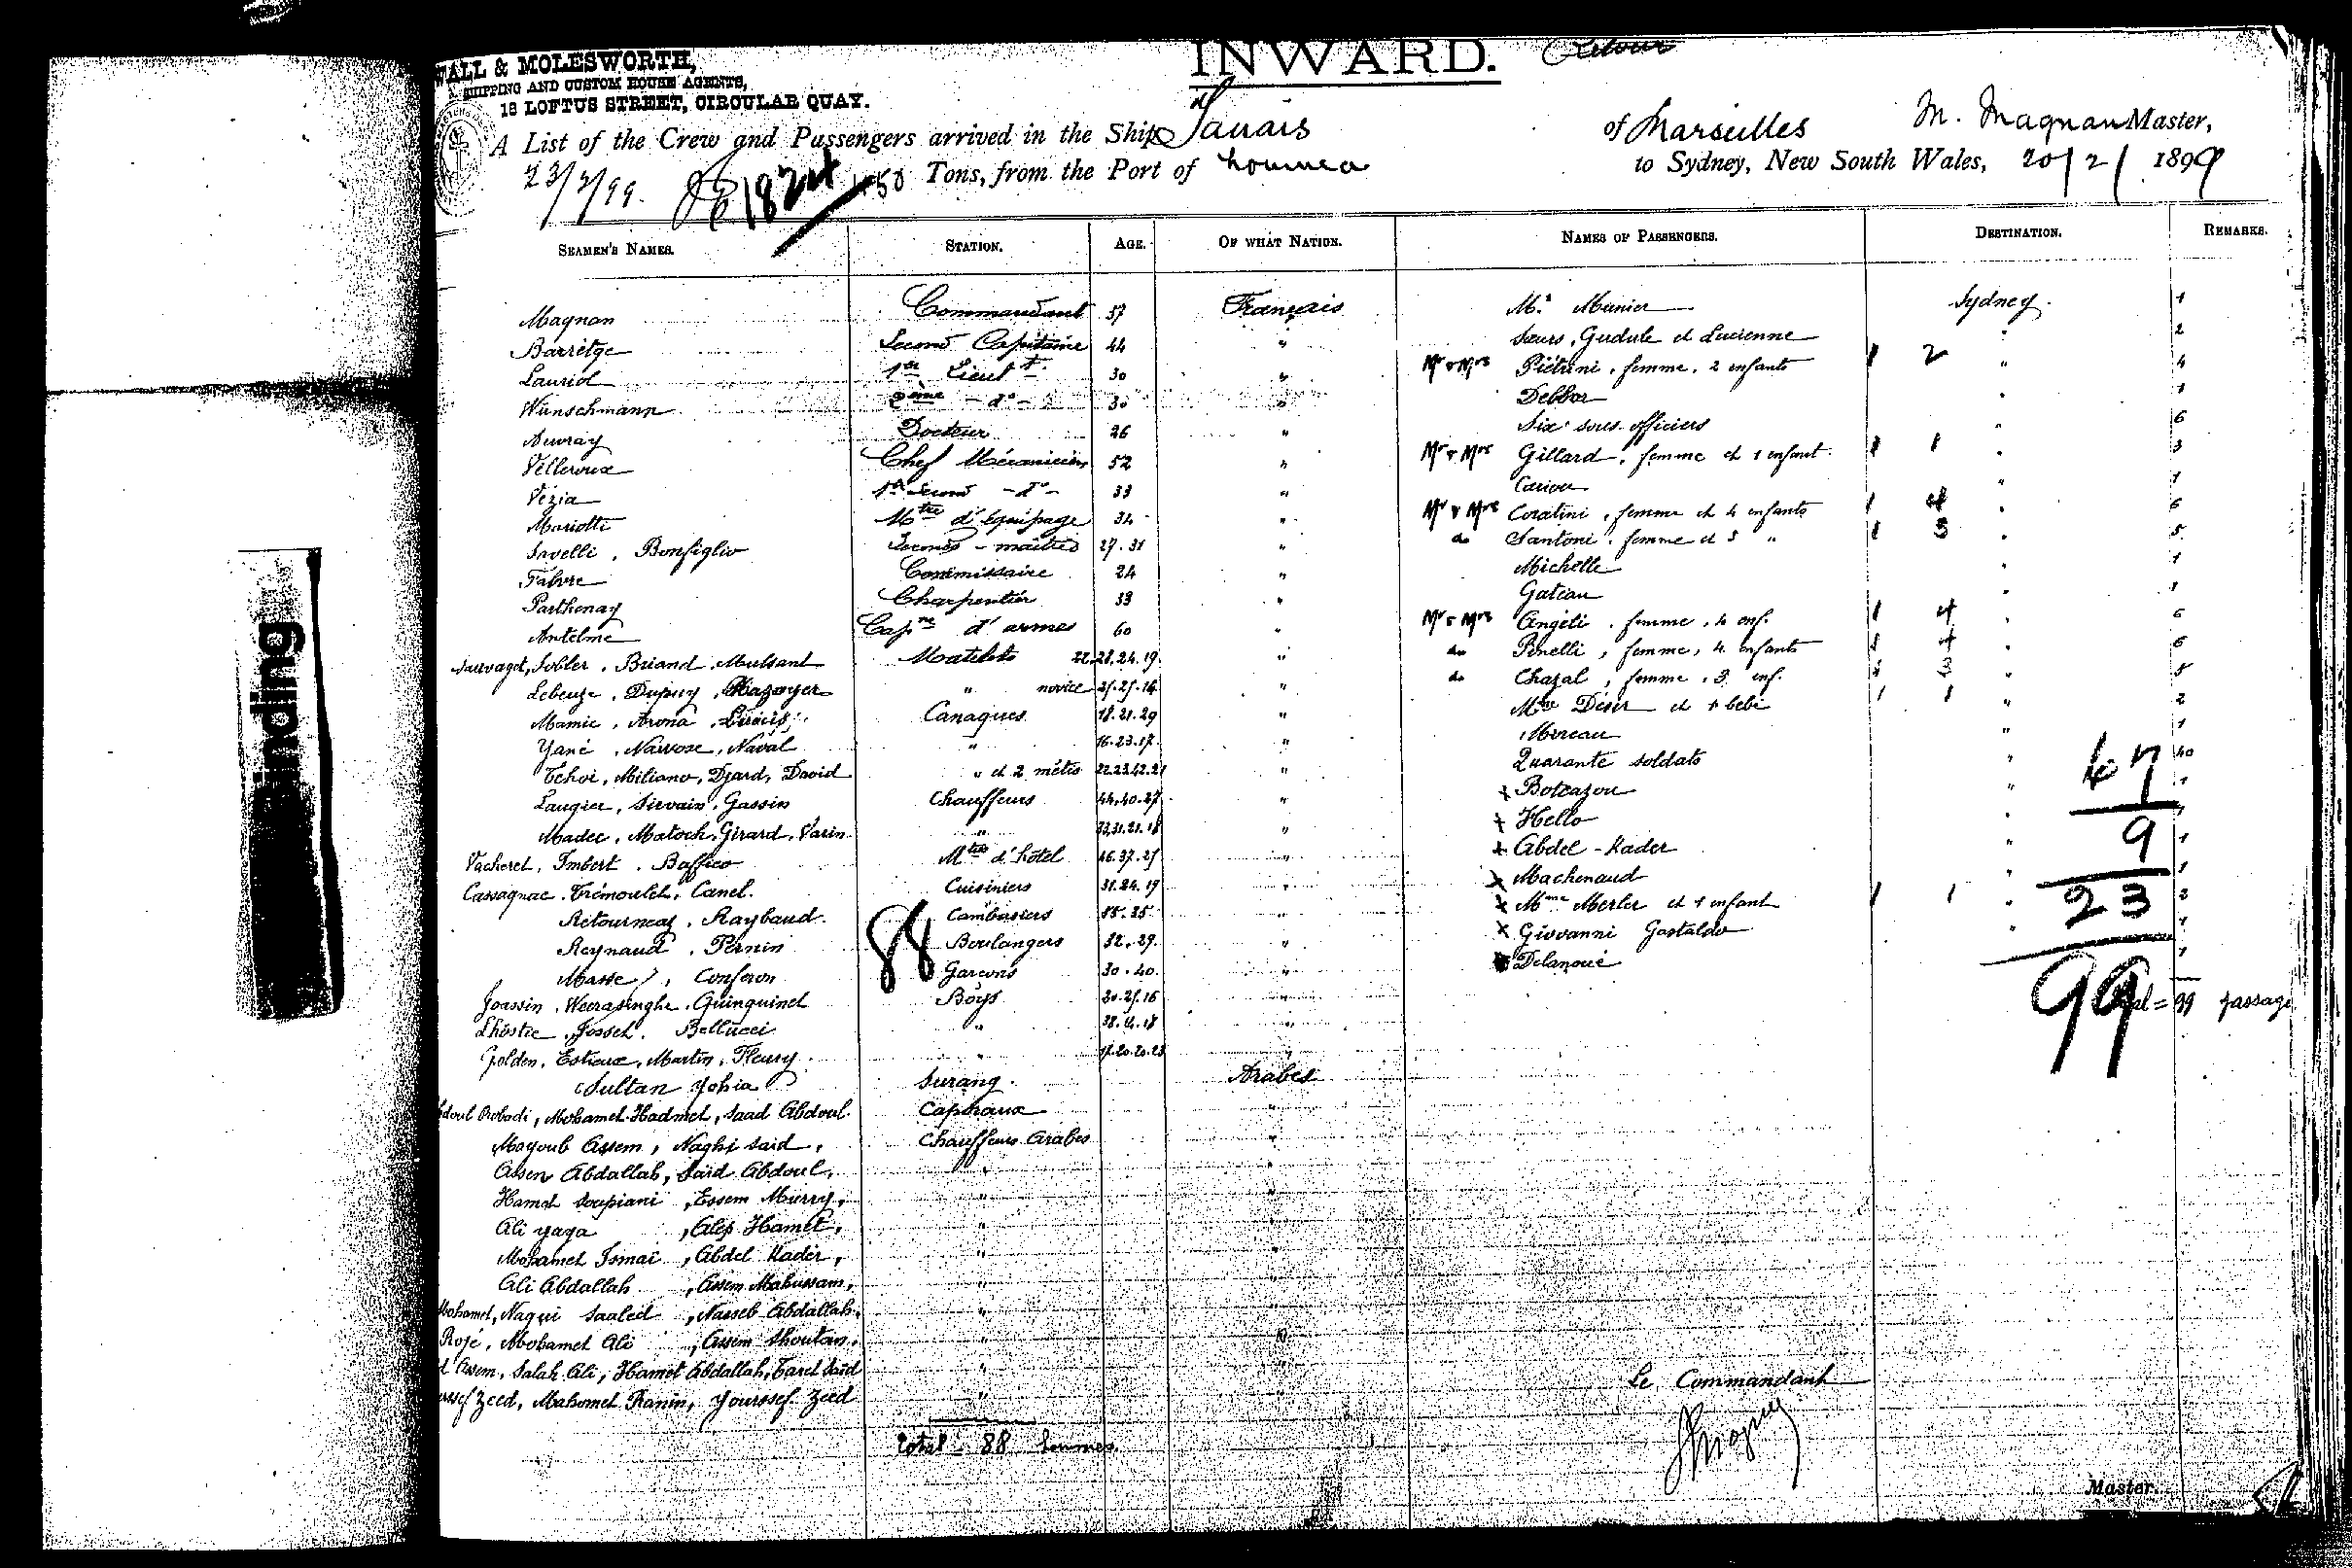 INWARD.
WALL & MOLESWORTH,
SHIPPING AND CUSTOM HOUSE AGENTS,
18 LOFTUS STREET, CIRCULAR QUAY.
A List of the Crew and Passengers arrived in the Ship Tanais of Marseilles M. Magnan Master,
23/2/99. 1824/50 Tons, from the Port of Noumea to Sydney, New South Wales, 20/2/ 1899
SEAMEN'S NAMES. STATION. AGE. OF WHAT NATION. NAMES OF PASSENGERS. DESTINATION. REMARKS.
Magnan Commandant 57 Français Mr Munier Sydney. 1
Barrètge Second Capitaine 44 " Sœurs, Gudule et Lucienne " 2
Lauriol 1er Lieutt 30 " Mr & Mrs Piétrini, femme, 2 enfants 1 2 " 4
Wunschmann 2ème - do - 30 " Debbor " 1
Auvray Docteur 26 " Six sous-officiers " 6
Villeroux Chef Mécanicien 52 " Mr & Mrs Gillard, femme et 1 enfant 1 1 " 3
Vézia 1er Second - do - 33 " Cariou " 1
Mariotti Mtre d'équipage 34 " Mr & Mrs Coratini, femme et 4 enfants 1 4 " 6
Savelli, Bonfiglio Seconds-maîtres 27. 31 " do Santoni, femme et 3 " 1 3 " 5
Fabre Commissaire 24 " Michelle " 1
Parthenay Charpentier 33 " Gateau " 1
Antelme Capne d'armes 60 " Mr & Mrs Angéli, femme, 4 enf. 1 4 " 6
Sauvaget, Sobler, Briand, Mulsant Matelots 22.28.24.19. " do Pinelli, femme, 4 enfants 1 4 " 6
Lebeuze, Dupuy, Mazoyer " novice " do Chazal, femme, 3 enf. 1 3 " 5
Mamie, Arona, Canaques 18.21.29 " Mme Désir et 1 bébé 1 1 " 2
Yané, Naivose, Naval " 16.23.17. " Moreau " 1
Tchoi, Miliano, Djard, David " et 2 métis 22.23.42.21 " Quarante soldats " 40
Laugier, Sirvain, Gassin Chauffeurs 44.40.27 " x Botcazou " 1
Madec, Matoch, Girard, Varin " 33.31.21.18 " x Hello " 1
Vacheret, Imbert, Baffico Mtre d'hôtel 46.37.25 " x Abdel-Kader " 1
Cassagnac, Trémoulet, Canel. Cuisiniers 31.24.19 " x Machenaud " 1
Retournay, Raybaud. Cambusiers " x Mme Merler et 1 enfant 1 1 " 2
Reynaud, Pernin Boulangers 32.29. " x Giovanni Gastaldo " 1
Masse, Conferon Garçons 30.40. " Delanoue 1
47
9
23
99
88
Joassin, Weerasinghe, Guinguinet Boys 20.25.16 " Total = 99 passag.
Lhostie, Josset, Bellucci " "
Golden, Estieux, Martin, Fleury. " 17.20.20.23 "
Sultan Yohia Surang. Arabes
Mohamet Hadmet, Saad Abdoul Caporaux "
Mayoub Assem, Naghi Said, Chauffeurs Arabes "
Assen Abdallah, Said Abdoul, " "
Hamet Soupiani, Essem Murry, " "
Ali yaya, Alep Hamet, " "
Mohamet Ismai, Abdel Kader, " "
Ali Abdallah, Assem Mahussam, " "
Mohamet, Nagui Saaled, Nasseb Abdallah, " "
Rojé, Mohamet Ali, Assem Shoutan, " "
Assem, Salah Ali, Hamet Abdallah, Taret Said " "
Zeed, Mahomet Franin, Yourssef Zeed " "
Le Commandant
Total = 88 hommes.
Magnan
Master.
Binding